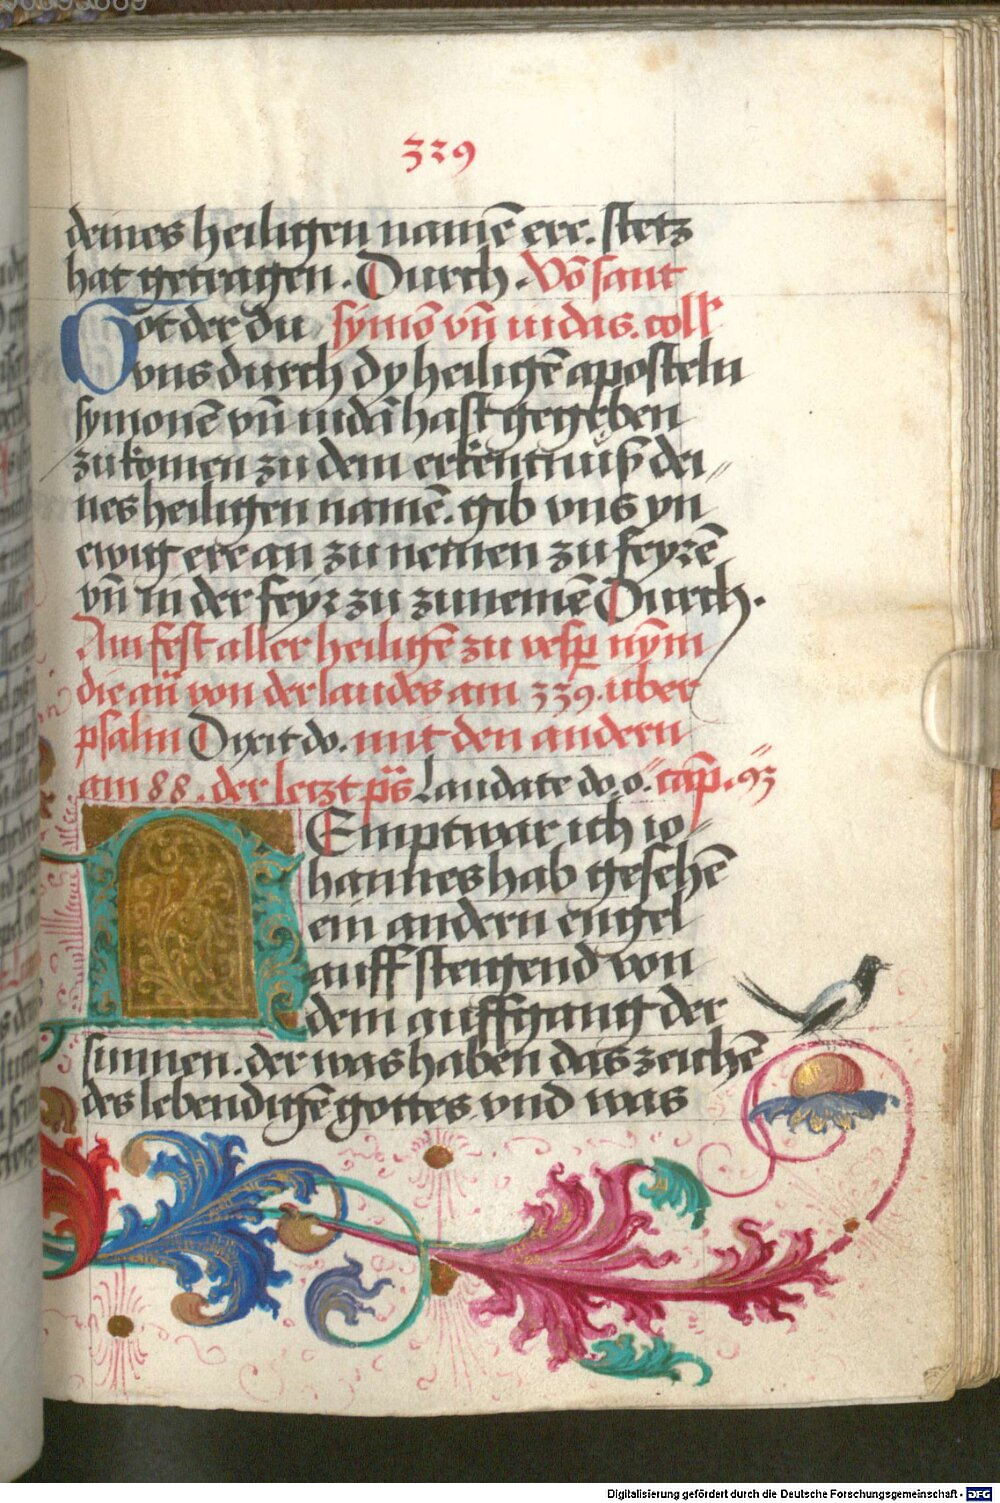 339
deines heiligen namē ere. stetz
hat getragen. Durch. Vō sant
Got der du symō vñ iudas. coll
vns durch dy heiligē aposteln
symonē vñ iudā hast gegeben
zu komen zu dem erkentnuß dei〃
nes heiligen namē. gib vns yn
ewig ere an zu nemen zu feyrē
vñ in der feyr zu zunemē Durch.
Am fest aller heiligē zu vesp nym
die añ von der laudes am 339. uber
psalm Dixit do. mit den andern
am 88. der letzt ps Laudate do. o. cap.
Nempt war ich io〃
hannes hab gesehē
ein andern engel
auff steigend von
dem auffgang der
sunnen. der was haben das zeichē
des lebendigē gottes vnd was
Digitalisierung gefördert durch die Deutsche Forschungsgemeinschaft - DFG